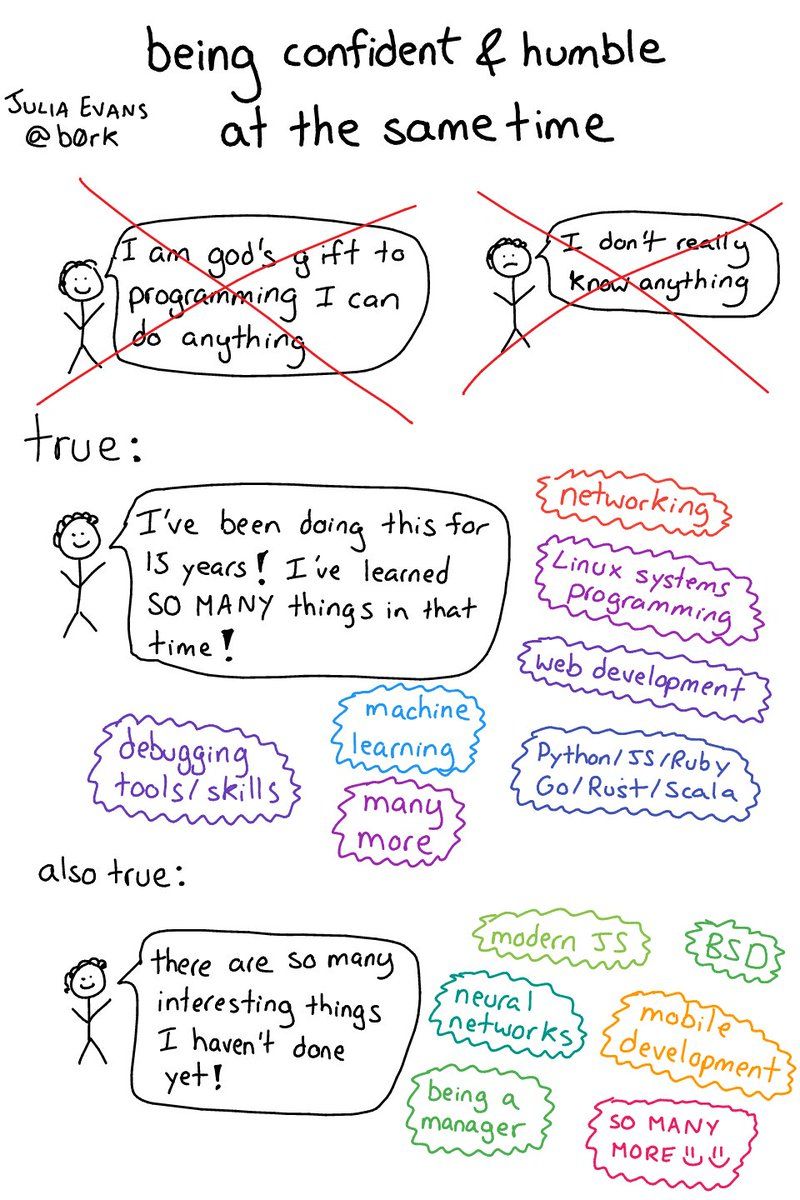 being confident & humble
at the same time
JULIA EVANS
@b0rk
I am god's gift to
programming I can
do anything
I don't really
know anything
true:
I've been doing this for
15 years! I've learned
SO MANY things in that
time!
networking
Linux systems
programming
web development
machine
learning
debugging
tools/skills
Python/JS/Ruby
Go/Rust/Scala
many
more
also true:
there are so many
interesting things
I haven't done
yet!
modern JS
BSD
neural
networks
mobile
development
being a
manager
SO MANY
MORE